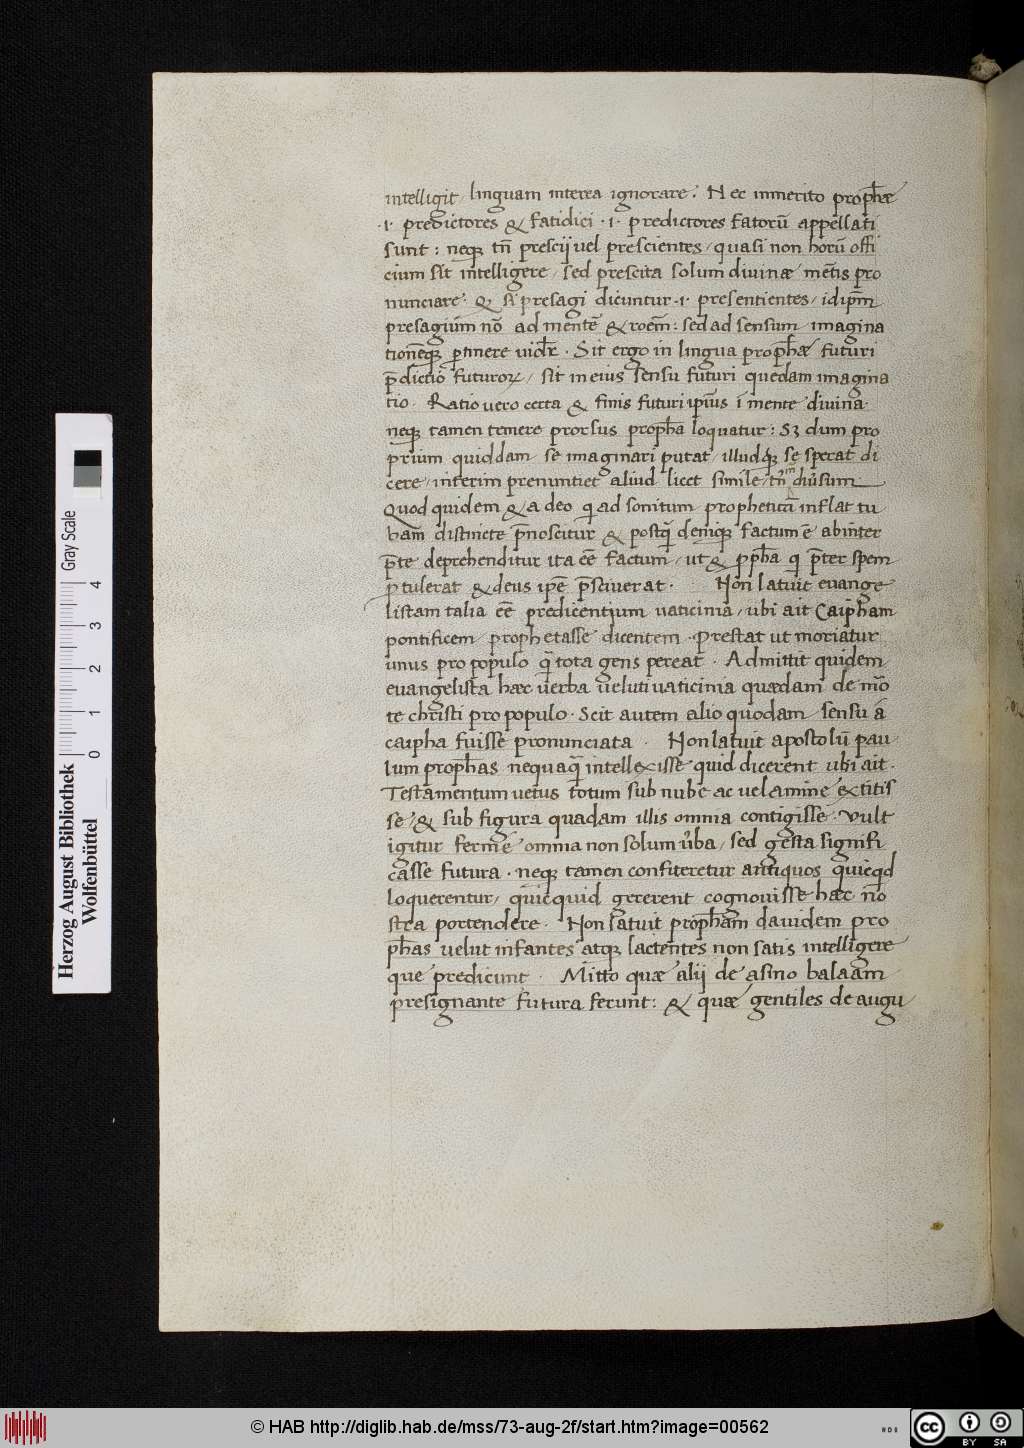 intelligit / linguam interea ignorare? Nec inmerito prophæ
·i· predictores & fatidici ·i· predictores fatorū appellati
sunt : neqꝫ tn̄ prescij uel prescientes / quasi non horū offi
cium sit intelligere / sed prescita solum divinæ mētis pro
nunciare : presagi dicuntur ·i· presentientes / idip̄m
presagium nō ad mentē & roēm : sed ad sensum imagina
tionēqꝫ ꝑtinere uidr̄ . Sit ergo in lingua prophæ futuri
p̄dictio futuroꝝ / sit in eius sensu futuri quedam imagina
tio . Ratio vero certa & finis futuri ipius ī mente divina .
neqꝫ tamen temere prorsus propħa loquatur : Sꝫ dum pro
prium quiddam se imaginari putat / illudqꝫ se sperat di
cere / interim prenuntiet aliud licet simile / tn̄ diūsum
Quod quidem & a deo qi ad sonitum propheticā inflat tu
bam distincte p̄noscitur & postq̄ deniqꝫ factum ē ab inter
p̄te deprehenditur ita eē factum / ut & ꝓpħa qi p̄ter spem
ꝓtulerat & deus ipē p̄sciverat . Non latuit evange
listam talia eē predicentium vaticinia / ubi ait Caipham
pontificem prophetasse dicentem . Prestat ut moriatur
unus pro populo q̄ tota gens pereat . Admittit quidem
evangelista hæc verba veluti vaticinia quædam de mō
te christi pro populo . Scit autem alio quodam sensu á
caipha fuisse pronunciata . Non latuit apostolū pau
lum prophas nequaq̄ intellexisse quid dicerent ubi ait .
Testamentum vetus totum sub nube ac velamine extitis
se & sub figura quadam illis omnia contigisse . Vult
igitur fermé omnia non solum ūba / sed gesta signifi
casse futura . neqꝫ tamen confiteretur antiquos quicqd
loquerentur / quicquid gererent cognovisse hæc nō
stra portendere . Non latuit propħam davidem pro
pħas velut infantes atqꝫ lactentes non satis intelligere
que predicunt . Mitto quæ alij de asino balaam
presignante futura ferunt : & quæ gentiles de augu
Herzog August Bibliothek
Wolfenbüttel
Gray Scale
0 1 2 3 4
© HAB http://diglib.hab.de/mss/73-aug-2f/start.htm?image=00562
cc BY SA